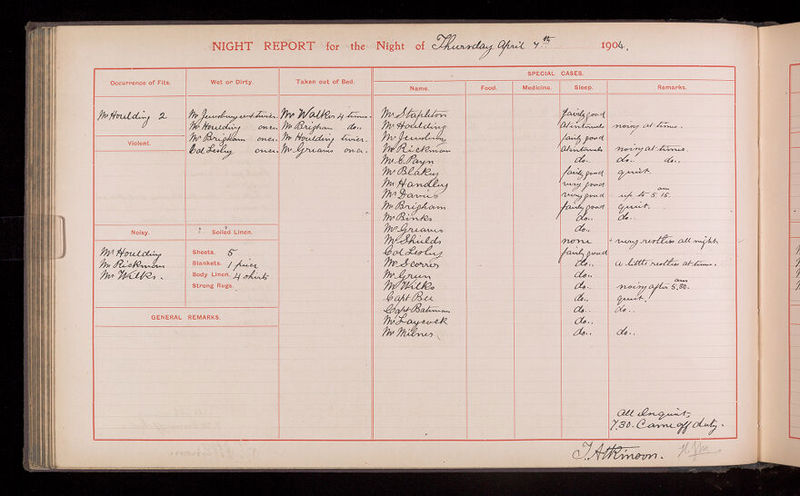 NIGHT REPORT for the Night of Thursday April 4th 1906.
SPECIAL CASES.
Occurrence of Fits. Wet or Dirty. Taken out of Bed. Name. Food. Medicine. Sleep. Remarks.
Mr Houlding 2
Violent.
Noisy.
Mr Houlding
Mr Rickman
Mr Wilks.
Mr Jewsbury wet twice.
Mr Houlding once.
Mr Brigham once.
Col Lesley once.
Soiled Linen.
Sheets. 5
Blankets. 1 piece
Body Linen. 4 shirts
Strong Rugs.
Mr Walks 4 times.
Mr Brigham do..
Mr Houlding twice.
Mr Greaves once.
Mr Stapleton fairly good
Mr Houlding at intervals noisy at times.
Mr Jewsbury fairly good
Mr Rickman at intervals noisy at times.
Mr C. Payn do.. do.. do..
Mr Blakey fairly good quiet.
Mr Handley very good
Mr Davies very good up to 5.15 am
Mr Brigham fairly good quiet.
Mr Binks do.. do..
Mr Greaves do..
Mr Shields none very restless all night
Col Lesley fairly good
Mr Scorrer do.. a little restless at times.
Mr Green do..
Mr Wilks do.. noisy after 5.30 am
Capt Bee do.. quiet.
Capt Bateman do.. do..
Mr Laycock do..
Mr Milner do.. do..
GENERAL REMARKS.
All In quiet
7.30. Came off duty.
J. Atkinson.